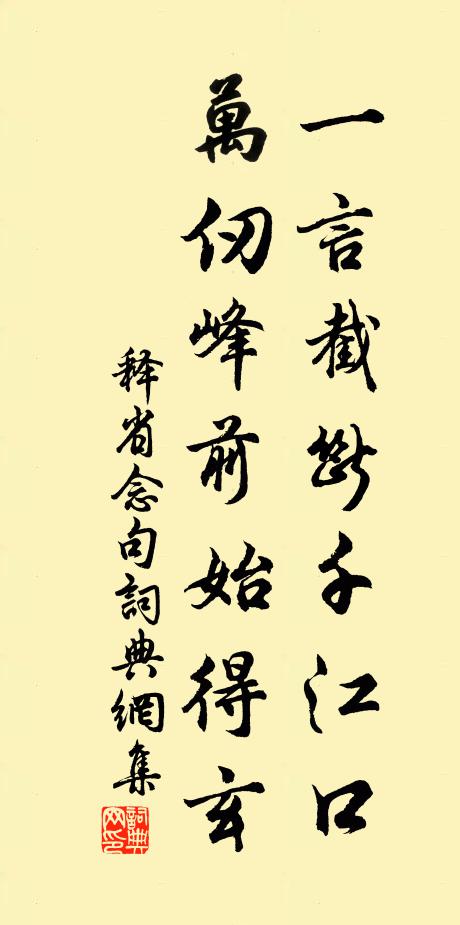 一言截斷千江口
萬仞峰前始得玄
释省念句詞典網集
詞典網印